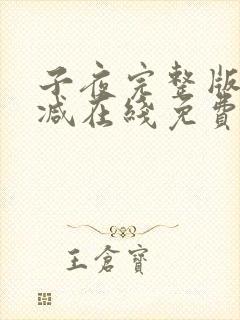 子夜完整版
减在线免費
王倉寶